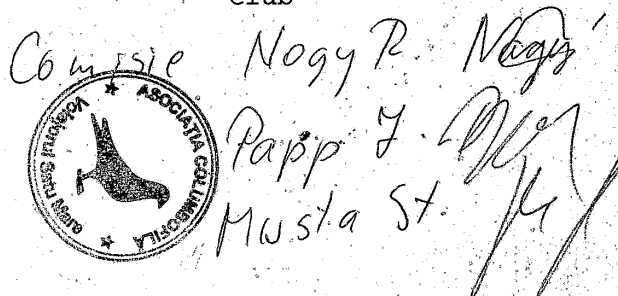 Club
Comisie Nagy R. Nagy
Papp J.
Musta St.
ASOCIATIA COLUMBOFILA
Voiajorul Satu Mare